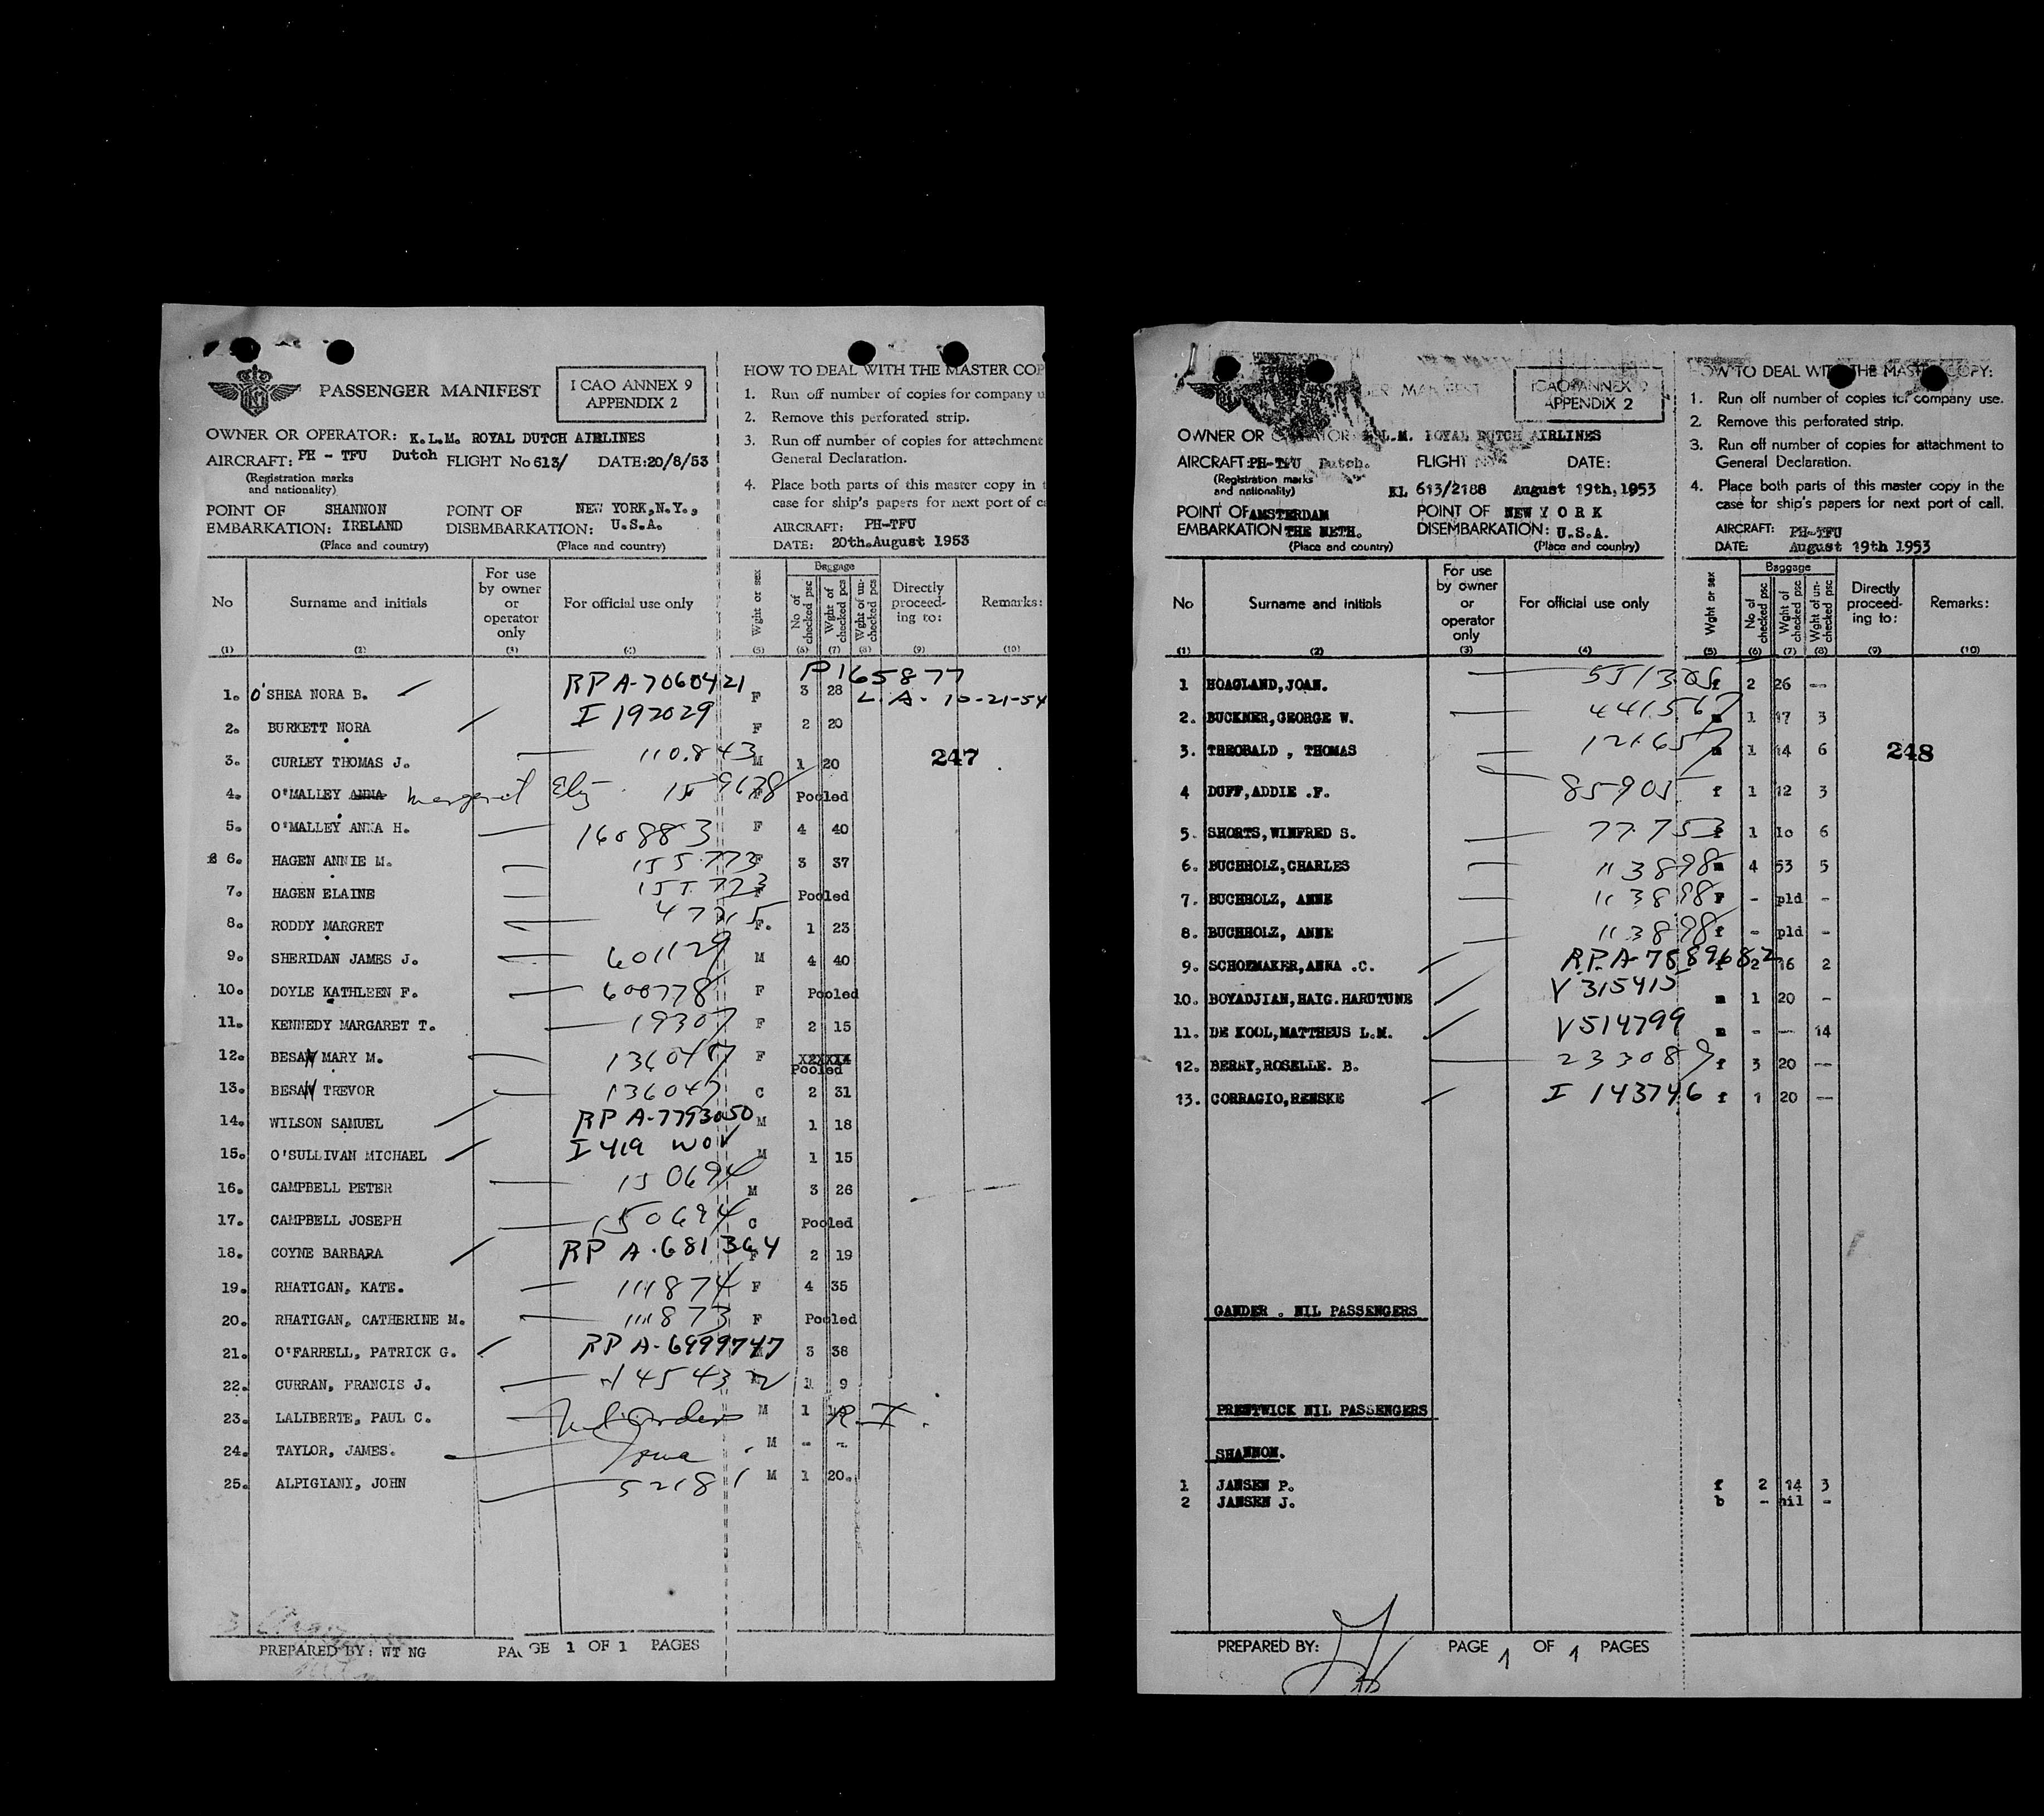 PASSENGER MANIFEST
I CAO ANNEX 9
APPENDIX 2
OWNER OR OPERATOR: K.L.M. ROYAL DUTCH AIRLINES
AIRCRAFT: PH - TFU Dutch FLIGHT No 613/ DATE: 20/8/53
(Registration marks
and nationality)
POINT OF SHANNON POINT OF NEW YORK, N.Y.,
EMBARKATION: IRELAND DISEMBARKATION: U.S.A.
(Place and country) (Place and country)
HOW TO DEAL WITH THE MASTER COP
1. Run off number of copies for company u
2. Remove this perforated strip.
3. Run off number of copies for attachment
General Declaration.
4. Place both parts of this master copy in t
case for ship's papers for next port of c
AIRCRAFT: PH-TFU
DATE: 20th.August 1953
No Surname and initials For use by owner or operator only For official use only Wght or sex Baggage No of checked psc Wght of checked pcs Wght of un-checked pcs Directly proceed-ing to: Remarks:
(1) (2) (3) (4) (5) (6) (7) (8) (9) (10)
P165877
1. O'SHEA NORA B. RP A-7060421 F 3 28 L.A. 10-21-54
2. BURKETT NORA I 192029 F 2 20
3. CURLEY THOMAS J. 110.843 M 1 20 247
4. O'MALLEY ANNA Margaret Eliz 159638 F Pooled
5. O'MALLEY ANNA H. 160883 F 4 40
6. HAGEN ANNIE M. 155.773 F 3 37
7. HAGEN ELAINE F Pooled
8. RODDY MARGRET F. 1 23
9. SHERIDAN JAMES J. 601129 M 4 40
10. DOYLE KATHLEEN F. 600778 F Pooled
11. KENNEDY MARGARET T. 19307 F 2 15
12. BESAN MARY M. 136047 F Pooled
13. BESAN TREVOR 136047 C 2 31
14. WILSON SAMUEL RP A-7793050 M 1 18
15. O'SULLIVAN MICHAEL I 419 WOV M 1 15
16. CAMPBELL PETER 150694 M 3 26
17. CAMPBELL JOSEPH 150694 C Pooled
18. COYNE BARBARA RP A-681364 F 2 19
19. RHATIGAN, KATE. 111874 F 4 35
20. RHATIGAN, CATHERINE M. 111873 F Pooled
21. O'FARRELL, PATRICK G. RP A-6999747 M 3 38
22. CURRAN, FRANCIS J. 145432 M 1 9
23. LALIBERTE, PAUL C. M 1 R.I.
24. TAYLOR, JAMES. M - -
25. ALPIGIANI, JOHN 52181 M 1 20.
PREPARED BY: WT NG PAGE 1 OF 1 PAGES
MANIFEST
ICAO ANNEX 9
APPENDIX 2
OWNER OR OPERATOR: K.L.M. ROYAL DUTCH AIRLINES
AIRCRAFT: PH-TFU Dutch. FLIGHT No DATE:
(Registration marks
and nationality) KL 613/2188 August 19th, 1953
POINT OF AMSTERDAM POINT OF NEW YORK
EMBARKATION THE NETH. DISEMBARKATION: U.S.A.
(Place and country) (Place and country)
HOW TO DEAL WITH THE MASTER COPY:
1. Run off number of copies for company use.
2. Remove this perforated strip.
3. Run off number of copies for attachment to
General Declaration.
4. Place both parts of this master copy in the
case for ship's papers for next port of call.
AIRCRAFT: PH-TFU
DATE: August 19th 1953
No Surname and initials For use by owner or operator only For official use only Wght or sex Baggage No of checked psc Wght of checked psc Wght of un-checked psc Directly proceed-ing to: Remarks:
(1) (2) (3) (4) (5) (6) (7) (8) (9) (10)
1 HOAGLAND, JOAN. 551305 f 2 26 --
2. BUCKNER, GEORGE W. 441.567 m 1 17 3
3. THEOBALD , THOMAS 121.657 m 1 14 6 248
4 DUFF, ADDIE .F. 85905 f 1 12 3
5. SHORTS, WINFRED S. 77.753 f 1 10 6
6. BUCHHOLZ, CHARLES 113898 m 4 53 5
7. BUCHHOLZ, ANNE 113898 F - pld -
8. BUCHHOLZ, ANNE 113898 f - pld -
9. SCHOEMAKER, ANNA .C. R.P. A-7889682 f 2 16 2
10. BOYADJIAN, HAIG.HARUTUNE V 315415 m 1 20 -
11. DE KOOL, MATTHEUS L.M. V514799 m - -- 14
12. BERRY, ROSELLE. B. 233089 f 3 20 --
13. CORRAGIO, RENSKE I 143746 f 1 20 --
GANDER . NIL PASSENGERS
PRESTWICK NIL PASSENGERS
SHANNON.
1 JANSEN P. f 2 14 3
2 JANSEN J. b - nil -
PREPARED BY: PAGE 1 OF 1 PAGES